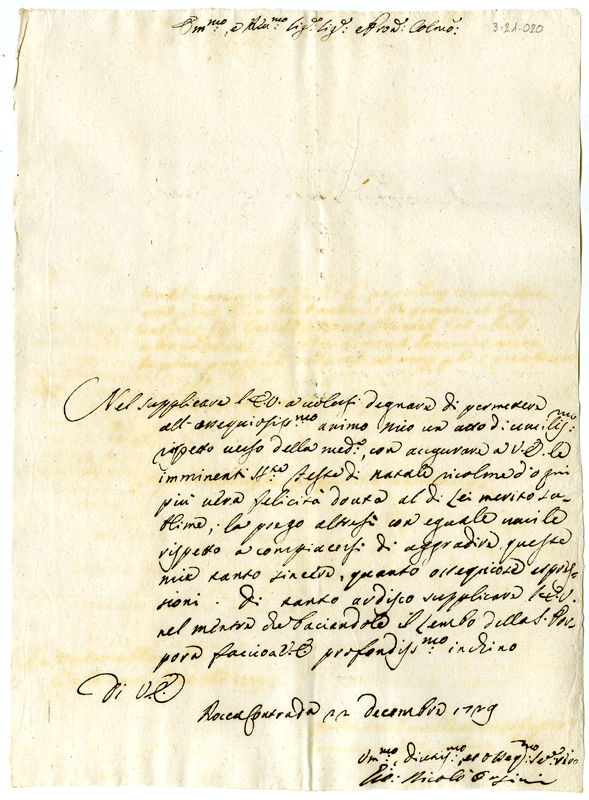 Em:mo, e R:mo Sig:re Sig:re e Pron: Colmo:
3-21-020
Nel supplicare l'E.V. a volersi degnare di permettere
all'ossequiosiss:mo animo mio un atto di umiliss:mo
rispetto verso della med:a, con augurare a V.E. le
imminenti S:te Feste di Natale ricolme d'ogni
più vera felicità dovuta al di Lei merito su-
blime; la prego altresì con eguale umile
rispetto a compiacersi di aggradire queste
mie tanto sincere, quanto ossequiose espres-
sioni. Di tanto ardisco supplicare l'E.V.
nel mentre che baciandole il Lembo della S. Por-
pora faccio a V.E. profondiss:mo inchino
Di V.E.
Rocca Contrada 22 decembre 1729
Um:mo, divotis:mo, et osseq:mo Se:re vero
Gio: Nicolò Orsini